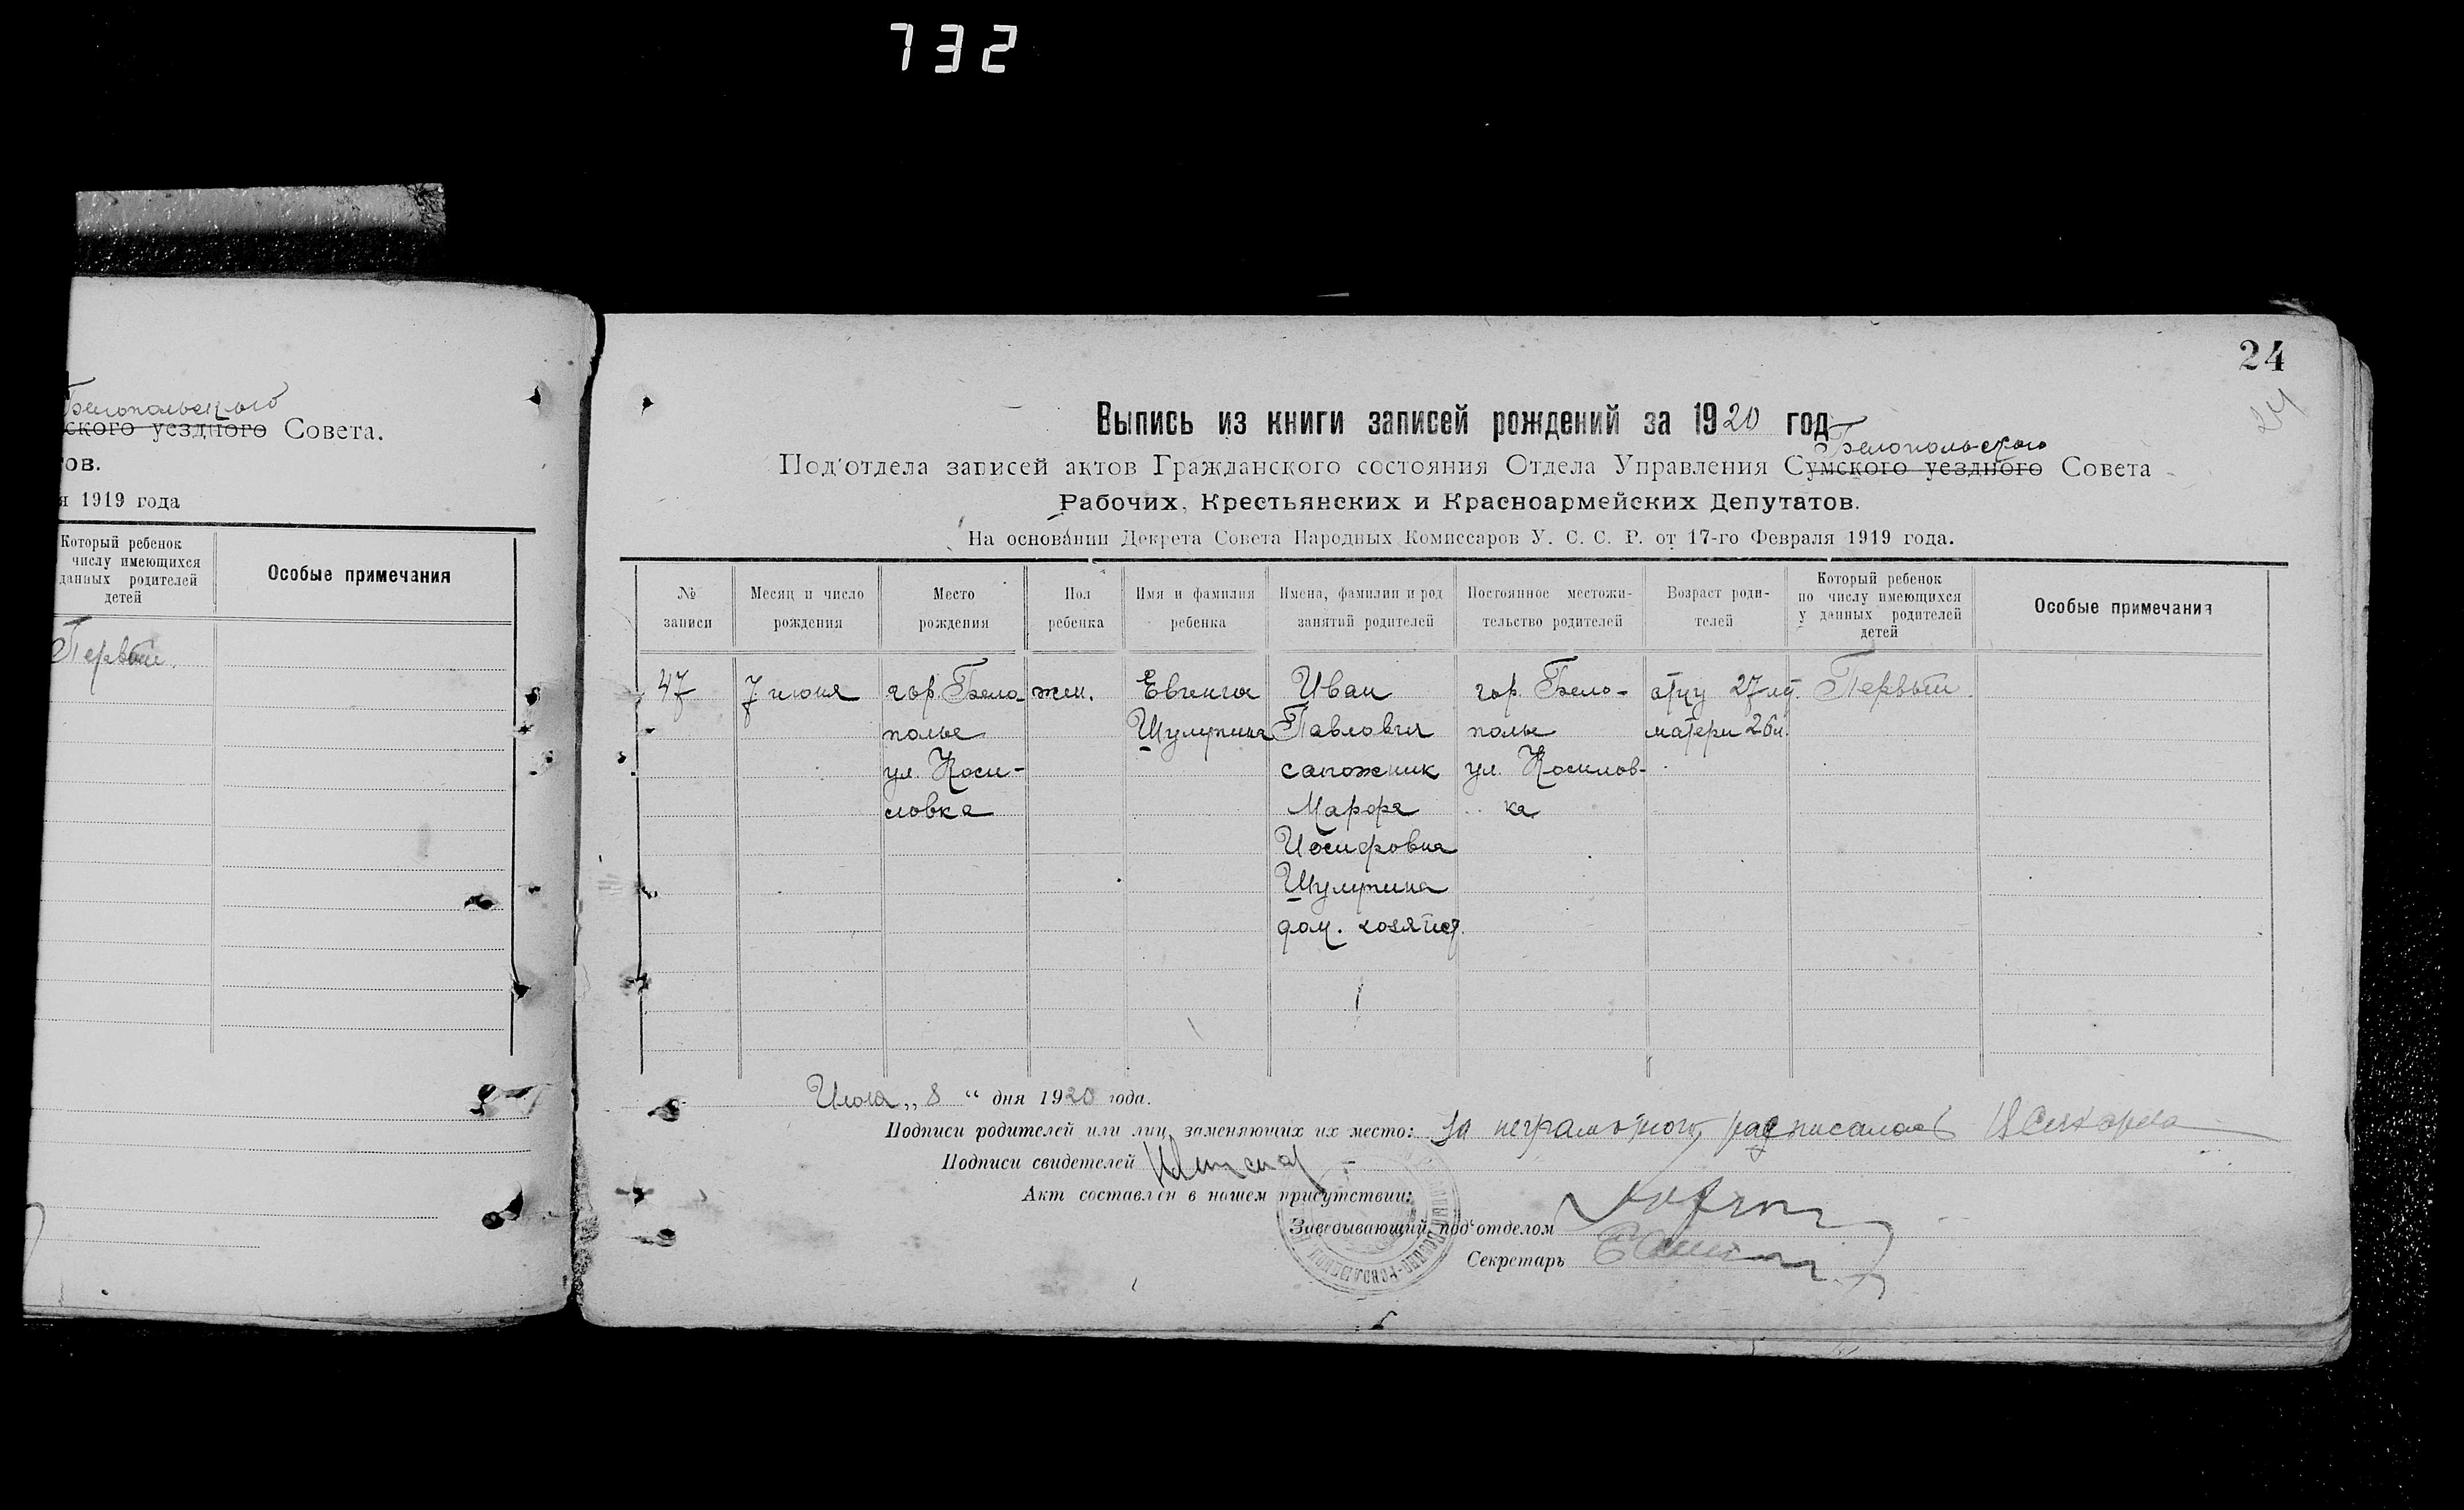 732
Белопольского
ского уездного Совета.
ов.
я 1919 года
Который ребенок
числу имеющихся
данных родителей
детей
Особые примечания
Первый.
24
24
Выпись из книги записей рождений за 1920 год
Белопольского
Под'отдела записей актов Гражданского состояния Отдела Управления Сумского уездного Совета
Рабочих, Крестьянских и Красноармейских Депутатов.
На основании Декрета Совета Народных Комиссаров У. С. С. Р. от 17-го Февраля 1919 года.
№ записи
Месяц и число рождения
Место рождения
Пол ребенка
Имя и фамилия ребенка
Имена, фамилии и род занятий родителей
Постоянное местожительство родителей
Возраст родителей
Который ребенок по числу имеющихся у данных родителей детей
Особые примечания
47 7 июня гор. Бело- жен. Евгения Иван гор. Бело- отцу 27 лет. Первый.
полье Шулипина Павлович полье матери 26 л.
ул. Коси- сапожник ул. Косилов-
ловка Марфа ка
Иосифовна
Шулипина
дом. хозяйка
Июля „ 8 “ дня 1920 года.
Подписи родителей или лиц, заменяющих их место: За неграмотного расписалась
Подписи свидетелей
Акт составлен в нашем присутствии:
Заведывающий под'отделом
Секретарь